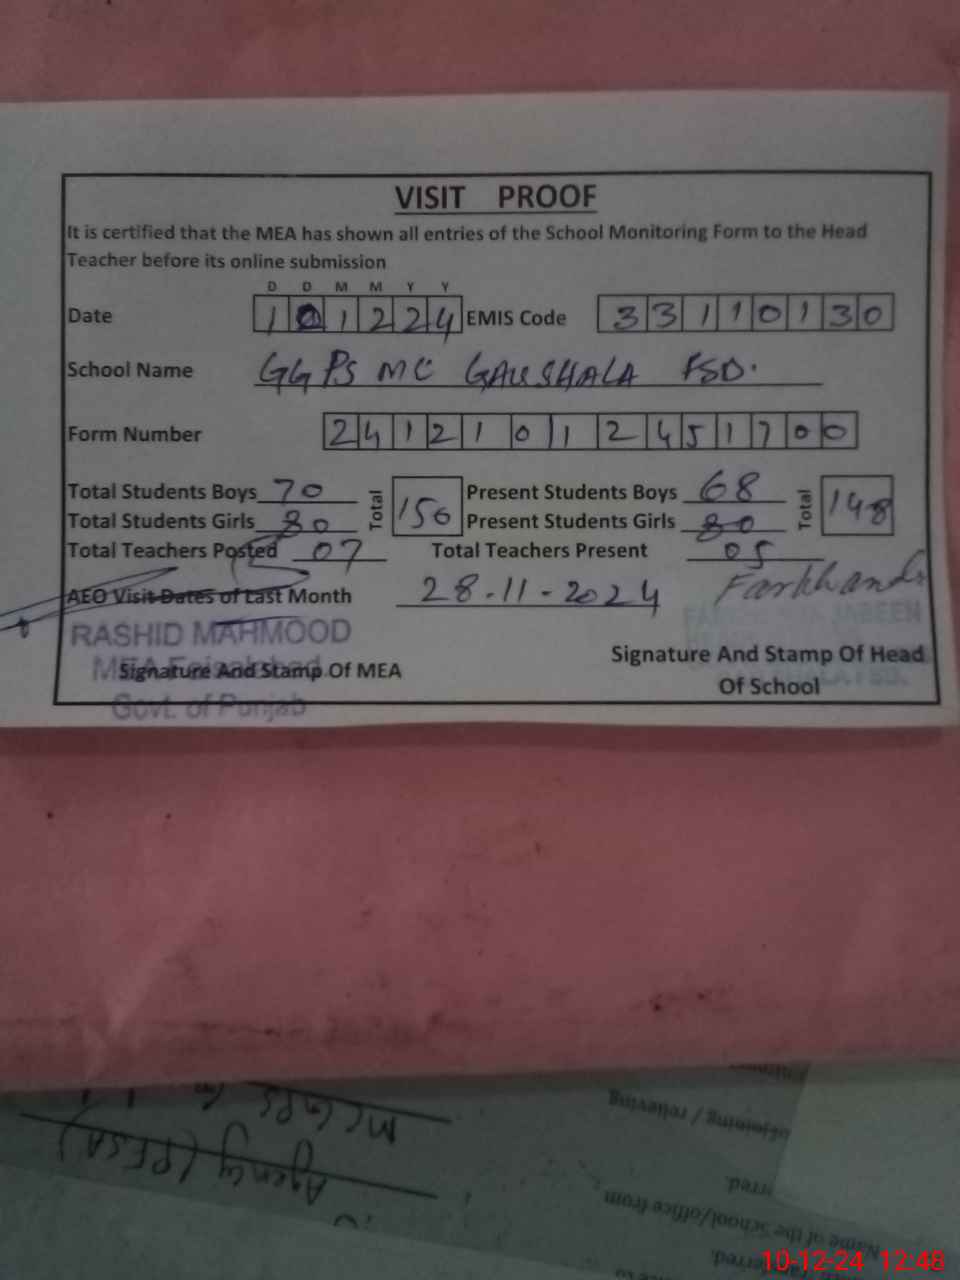 VISIT PROOF
It is certified that the MEA has shown all entries of the School Monitoring Form to the Head
Teacher before its online submission
D D M M Y Y
Date 1 0 1 2 2 4 EMIS Code 3 3 1 1 0 1 3 0
School Name GGPS MC GAUSHALA FSD.
Form Number 2 4 1 2 1 0 1 2 4 5 1 7 0 0
Total Students Boys 70 Total 150 Present Students Boys 68 Total 148
Total Students Girls 80 Present Students Girls 80
Total Teachers Posted 07 Total Teachers Present 05
AEO Visit Dates of Last Month 28-11-2024 Farkhanda
RASHID MAHMOOD JABEEN
MEA Faisalabad
Signature And Stamp Of MEA Signature And Stamp Of Head
Of School
Govt. of Punjab
MCGPS
Agency (PESA)
of joining / relieving
Name of the School/office from
10-12-24 12:48